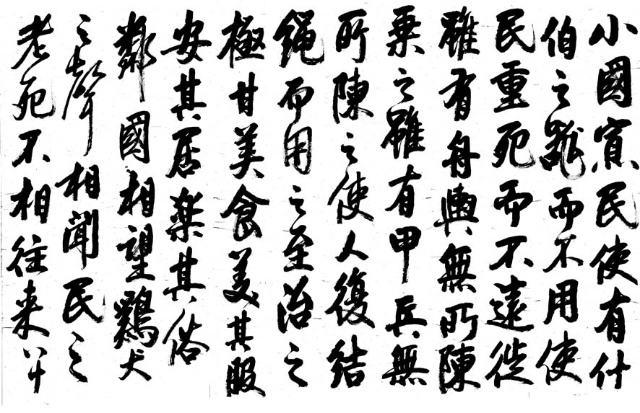 小國寡民使有什
伯之器而不用使
民重死而不遠徙
雖有舟輿無所陳
乗之雖有甲兵無
所陳之使人復結
繩而用之至治之
極甘美食美其服
安其居楽其俗
鄰國相望鷄犬
之聲相聞民之
老死不相往来